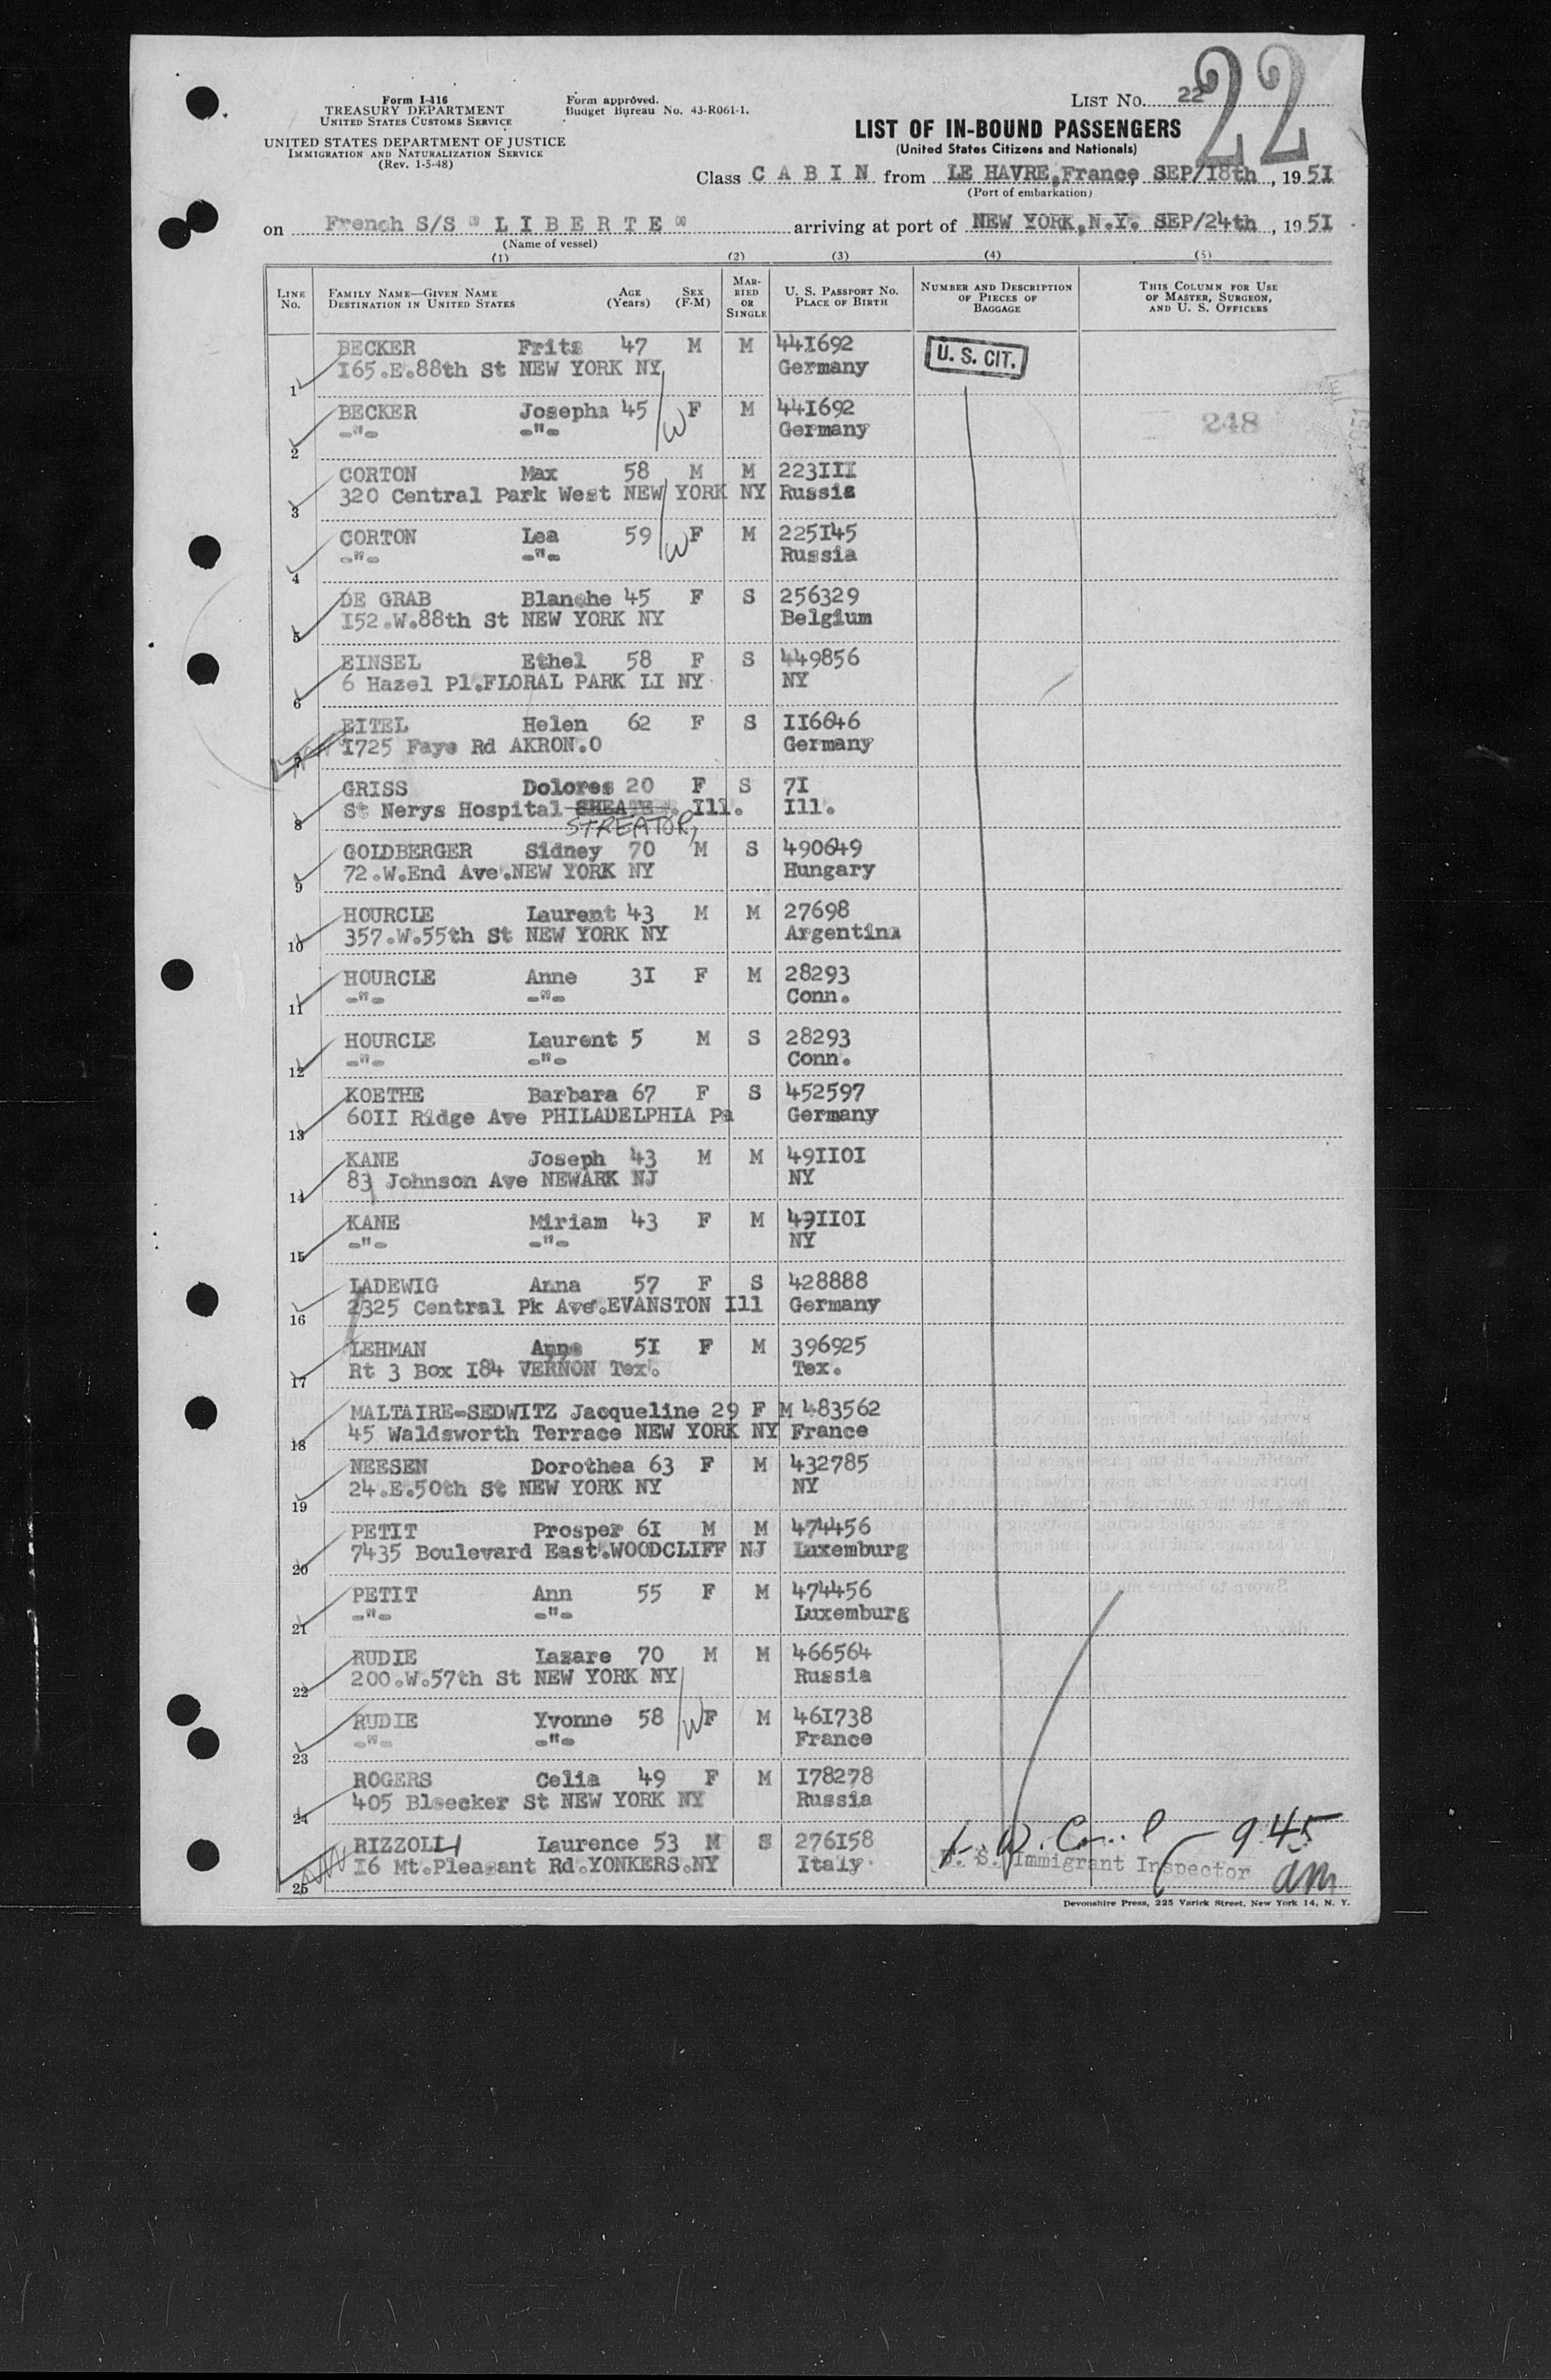 22
Form I-416
TREASURY DEPARTMENT
UNITED STATES CUSTOMS SERVICE
UNITED STATES DEPARTMENT OF JUSTICE
IMMIGRATION AND NATURALIZATION SERVICE
(Rev. 1-5-48)
Form approved.
Budget Bureau No. 43-R061-1.
LIST NO. 22
LIST OF IN-BOUND PASSENGERS
(United States Citizens and Nationals)
Class C A B I N from LE HAVRE,France, SEP/I8th, 1951
(Port of embarkation)
on French S/S " L I B E R T E " arriving at port of NEW YORK,N.Y. SEP/24th, 1951
(Name of vessel)
(1) (2) (3) (4) (5)
LINE NO. FAMILY NAME—GIVEN NAME DESTINATION IN UNITED STATES AGE (Years) SEX (F-M) MARRIED OR SINGLE U. S. PASSPORT NO. PLACE OF BIRTH NUMBER AND DESCRIPTION OF PIECES OF BAGGAGE THIS COLUMN FOR USE OF MASTER, SURGEON, AND U. S. OFFICERS
BECKER Fritz 47 M M 44I692 U. S. CIT.
1 I65.E.88th St NEW YORK NY Germany
BECKER Josepha 45 W F M 44I692 248
2 -"- -"- Germany
CORTON Max 58 M M 223III
3 320 Central Park West NEW YORK NY Russia
CORTON Lea 59 W F M 225I45
4 -"- -"- Russia
DE GRAB Blanche 45 F S 256329
5 I52.W.88th St NEW YORK NY Belgium
EINSEL Ethel 58 F S 449856
6 6 Hazel Pl.FLORAL PARK LI NY NY
EITEL Helen 62 F S II6646
7 I725 Faye Rd AKRON.O Germany
GRISS Dolores 20 F S 7I
8 St Nerys Hospital Ill. Ill.
STREATOR,
GOLDBERGER Sidney 70 M S 490649
9 72.W.End Ave.NEW YORK NY Hungary
HOURCLE Laurent 43 M M 27698
10 357.W.55th St NEW YORK NY Argentina
HOURCLE Anne 3I F M 28293
11 -"- -"- Conn.
HOURCLE Laurent 5 M S 28293
12 -"- -"- Conn.
KOETHE Barbara 67 F S 452597
13 60II Ridge Ave PHILADELPHIA Pa Germany
KANE Joseph 43 M M 49II0I
14 83 Johnson Ave NEWARK NJ NY
KANE Miriam 43 F M 49II0I
15 -"- -"- NY
LADEWIG Anna 57 F S 428888
16 2325 Central Pk Ave.EVANSTON Ill Germany
LEHMAN Anne 5I F M 396925
17 Rt 3 Box I84 VERNON Tex. Tex.
MALTAIRE-SEDWITZ Jacqueline 29 F M 483562
18 45 Waldsworth Terrace NEW YORK NY France
NEESEN Dorothea 63 F M 432785
19 24.E.50th St NEW YORK NY NY
PETIT Prosper 6I M M 474456
20 7435 Boulevard East.WOODCLIFF NJ Luxemburg
PETIT Ann 55 F M 474456
21 -"- -"- Luxemburg
RUDIE Lazare 70 M M 466564
22 200.W.57th St NEW YORK NY Russia
RUDIE Yvonne 58 W F M 46I738
23 -"- -"- France
ROGERS Celia 49 F M I78278
24 405 Bleecker St NEW YORK NY Russia
RIZZOLI Laurence 53 M S 276I58 945
25 I6 Mt.Pleasant Rd.YONKERS.NY Italy U. S. Immigrant Inspector am
Devonshire Press, 225 Varick Street, New York 14, N. Y.